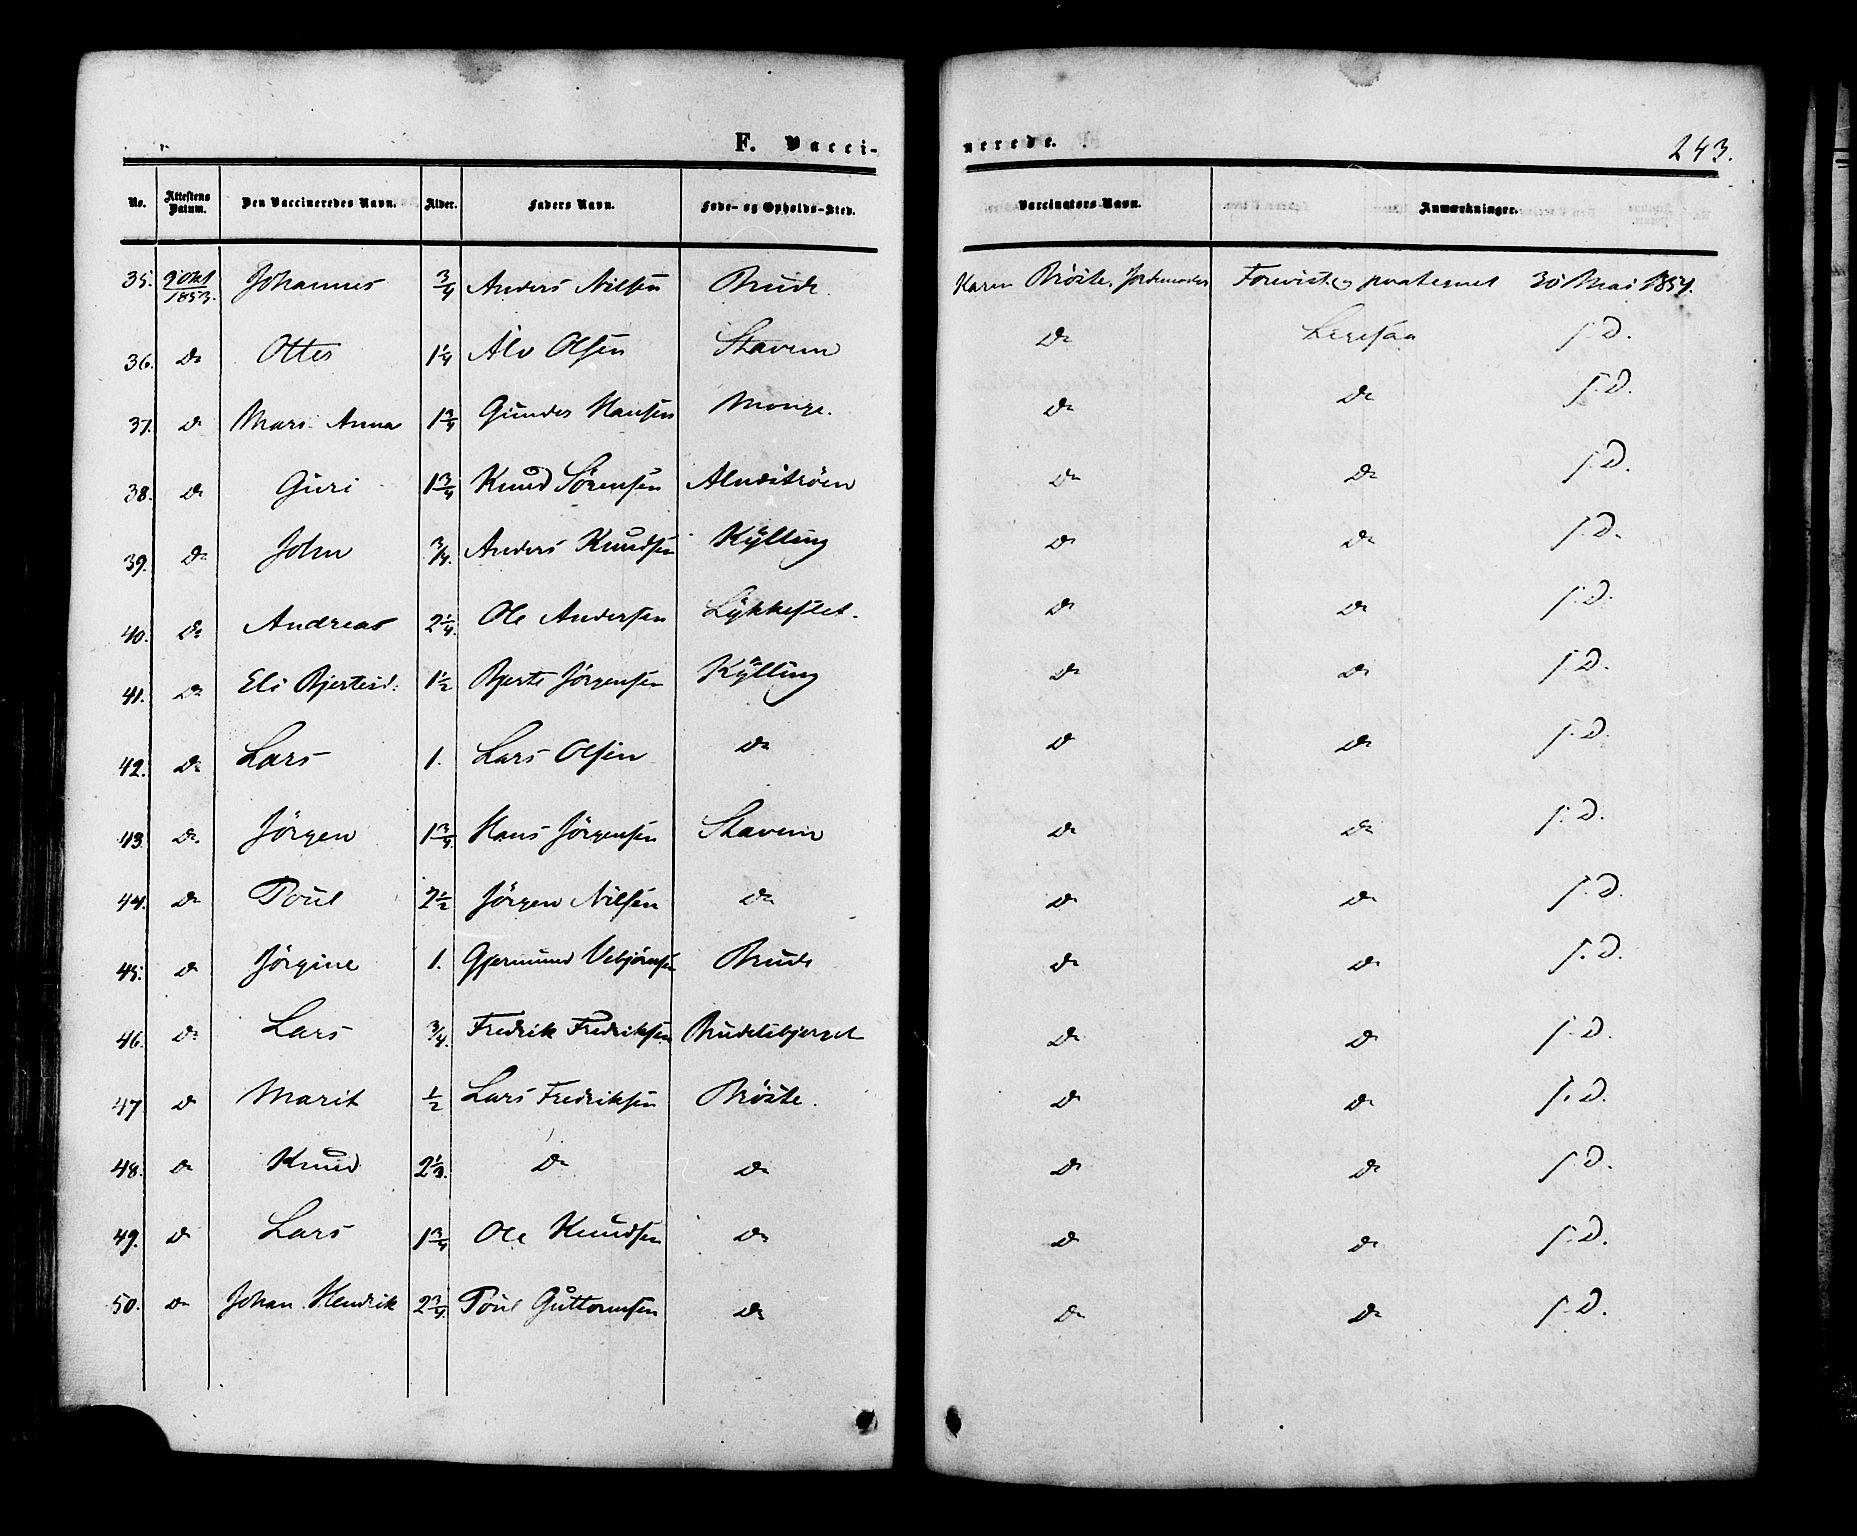 F. Vacci-
nerede.
243.
No. Attestens Datum. Den Vaccineredes Navn. Alder. Faders Navn. Føde- og Opholds-Sted. Vaccinators Navn. Anmærkninger.
35. 9 Okt 1853. Johannes 3/4 Anders Nilsen Brude. Karen Brøste, Jordemoder 30 Mai 1854.
36. Do Otter 1 1/4 Alv Olsen Stavem Do Ligesaa s. D.
37. Do Mari Anna 1 3/4 Gunder Hansen Monge. Do Do s. D.
38. Do Guri 1 3/4 Knud Sørensen Alnæström Do Do s. D.
39. Do John 3/4. Anders Knudsen Kÿlling Do Do s. D.
40. Do Andreas 2 1/4. Ole Andersen Lÿkkeslet. Do Do s. D.
41. Do Eli Bjertesd: 1 1/2 Bjerte Jörgensen Kÿlling Do Do s. D.
42. Do Lars 1. Lars Olsen Do Do Do s. D.
43. Do Jörgen 1 3/4. Hans Jörgensen Stavem Do Do s. D.
44. Do Poul 2 1/2 Jörgen Nilsen Do Do Do s. D.
45. Do Jörgine 1. Gjermund Vebjörnsen Brude Do Do s. D.
46. Do Lars 3/4. Fredrik Fredriksen Brudelsbjerget Do Do s. D.
47 Do Marit 1/2 Lars Fredriksen Bröste. Do Do s. D.
48. Do Knud 2 1/3. Do Do Do Do s. D.
49. Do Lars 1 3/4 Ole Knudsen Do Do Do s. D.
50. Do Johan Hendrik 2 3/4. Poul Guttormsen Do Do Do s. D.